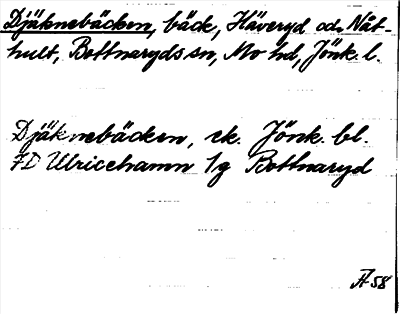 Djäknebäcken, bäck, Häveryd och Nåt-
hult, Bottnaryds sn, Mo hd, Jönk. l.
Djäknebäcken, ek. Jönk. bl.
7D Ulricehamn 1g Bottnaryd
58